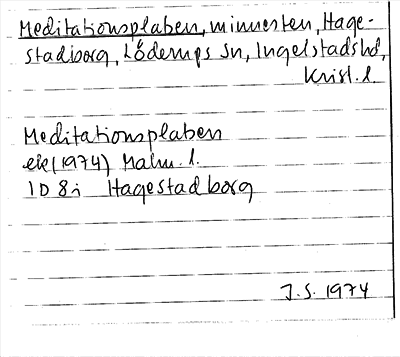 Meditationsplaben, minnesten, Hage-
stadborg, Löderups sn, Ingelstads hd,
Krist. l.
Meditationsplaben
ek (1974) Malm. l.
1D 8i Hagestadborg
J.S. 1974